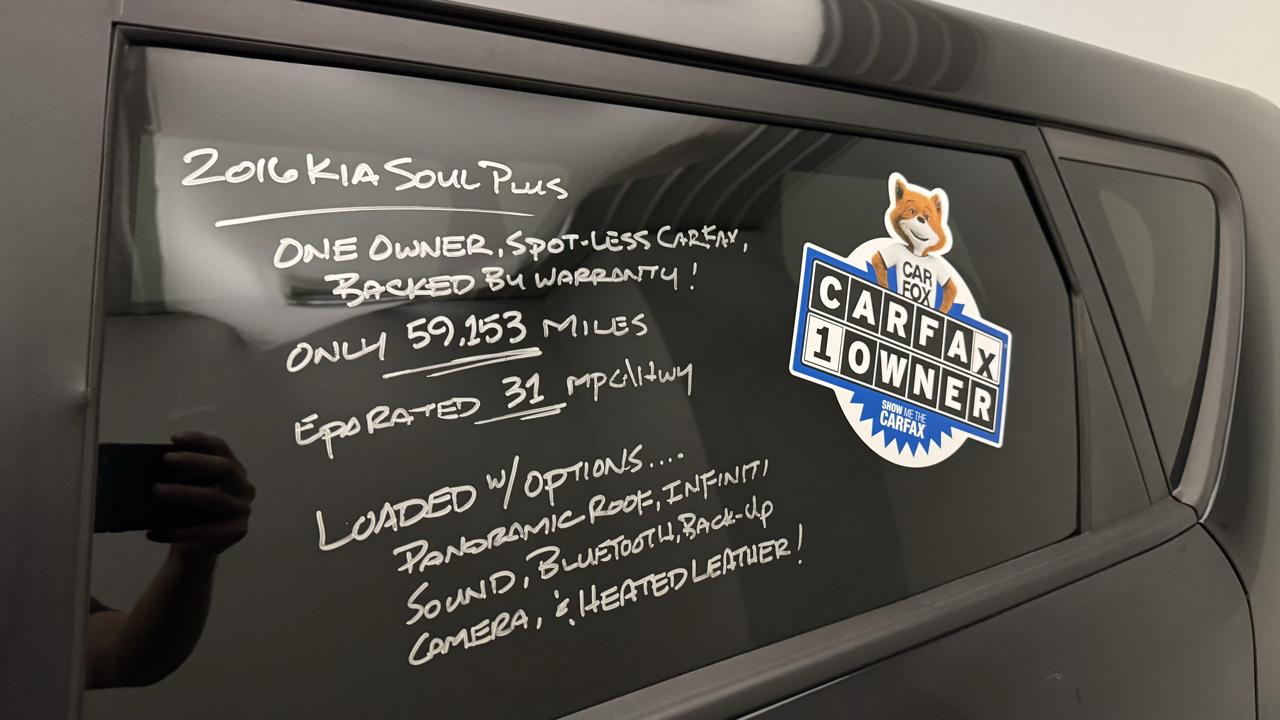 2016 KIA SOUL PLUS
ONE OWNER, SPOT-LESS CARFAX,
BACKED BY WARRANTY!
ONLY 59,153 MILES
EPA RATED 31 mpg/Hwy
LOADED w/OPTIONS....
PANORAMIC ROOF, INFINITI
SOUND, BLUETOOTH, BACK-Up
CAMERA, & HEATED LEATHER!
CAR
FOX
CARFAX
1 OWNER
SHOW ME THE
CARFAX